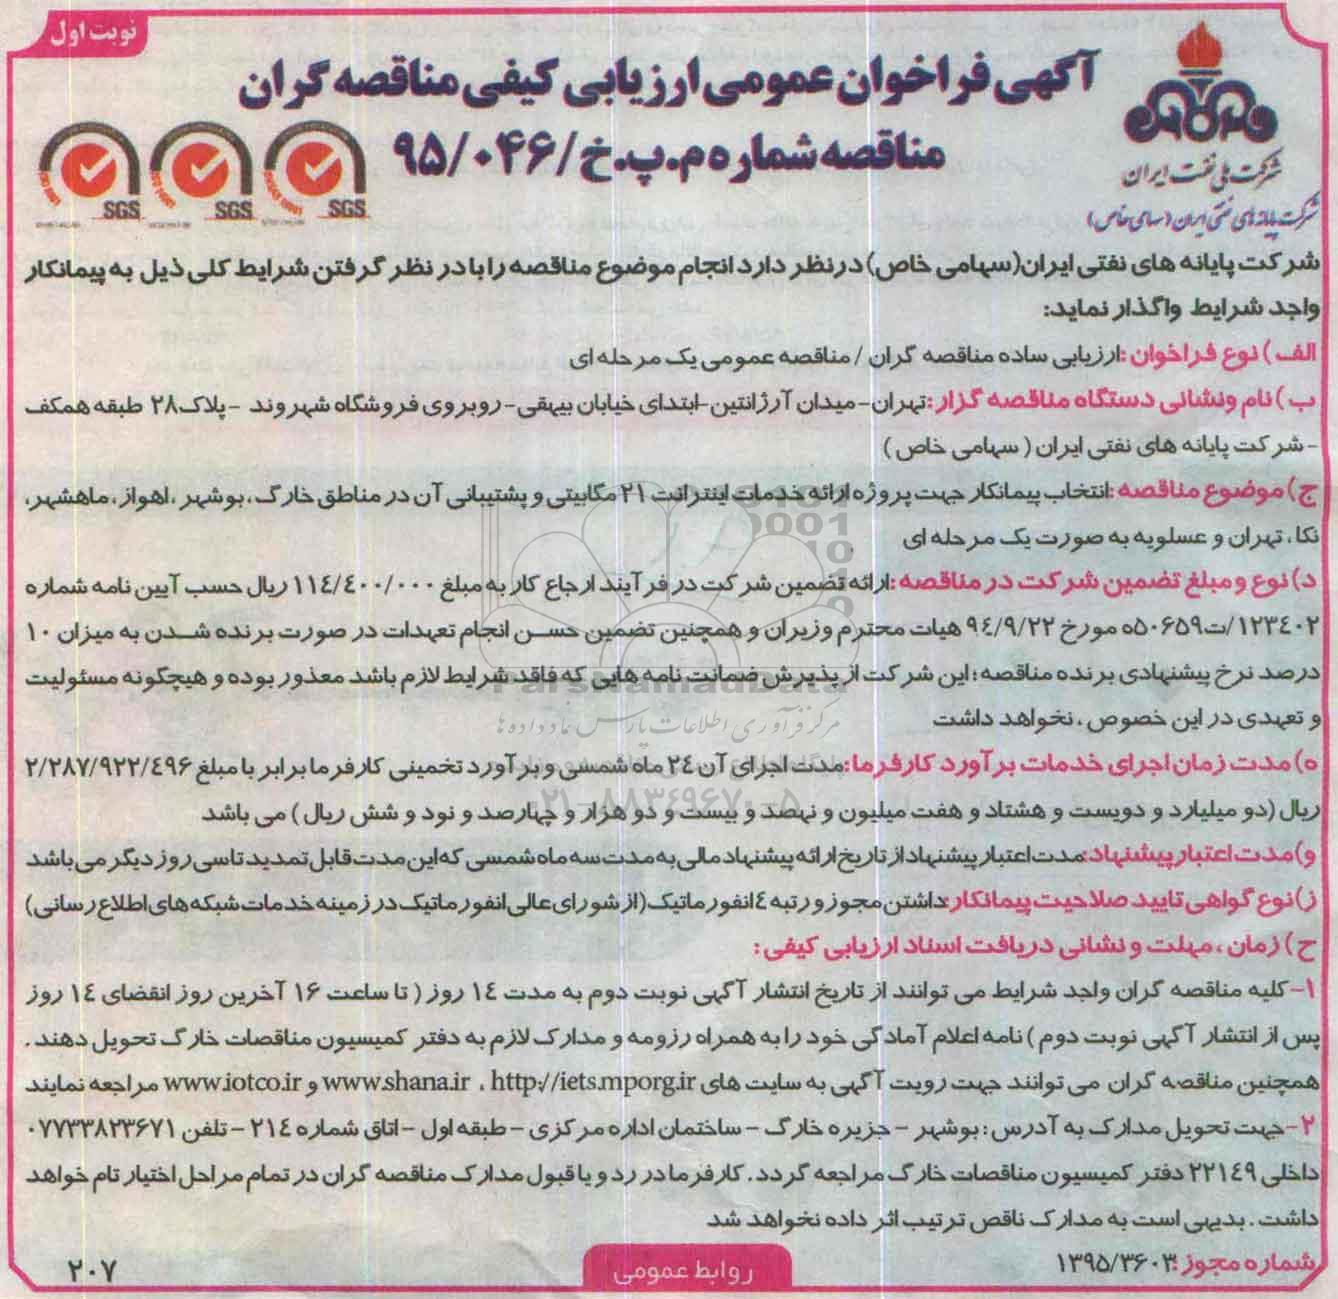 نوبت اول
آگهی فراخوان عمومی ارزیابی کیفی مناقصه گران
مناقصه شماره م.پ.خ/۹۵/۰۴۶
شرکت ملی نفت ایران
شرکت پایانه های نفتی ایران (سهامی خاص)
SGS SGS SGS
شرکت پایانه های نفتی ایران(سهامی خاص) درنظر دارد انجام موضوع مناقصه را با در نظر گرفتن شرایط کلی ذیل به پیمانکار
واجد شرایط واگذار نماید:
الف) نوع فراخوان :ارزیابی ساده مناقصه گران / مناقصه عمومی یک مرحله ای
ب) نام ونشانی دستگاه مناقصه گزار:تهران-میدان آرژانتین-ابتدای خیابان بیهقی-روبروی فروشگاه شهروند -پلاک۲۸ طبقه همکف
-شرکت پایانه های نفتی ایران ( سهامی خاص )
ج) موضوع مناقصه :انتخاب پیمانکار جهت پروژه ارائه خدمات اینترانت ۲۱ مگابیتی و پشتیبانی آن در مناطق خارگ، بوشهر ،اهواز، ماهشهر،
نکا، تهران و عسلویه به صورت یک مرحله ای
د) نوع و مبلغ تضمین شرکت در مناقصه :ارائه تضمین شرکت در فرآیند ارجاع کار به مبلغ ۱۱۴/۴۰۰/۰۰۰ ریال حسب آیین نامه شماره
۱۲۳۴۰۲/ت۵۰۶۵۹ه مورخ ۹۴/۹/۲۲ هیات محترم وزیران و همچنین تضمین حسن انجام تعهدات در صورت برنده شدن به میزان ۱۰
درصد نرخ پیشنهادی برنده مناقصه ؛ این شرکت از پذیرش ضمانت نامه هایی که فاقد شرایط لازم باشد معذور بوده و هیچگونه مسئولیت
و تعهدی در این خصوص ، نخواهد داشت
ه) مدت زمان اجرای خدمات برآورد کارفرما:مدت اجرای آن ۲۴ ماه شمسی و برآورد تخمینی کارفرما برابر با مبلغ ۲/۲۸۷/۹۲۲/۴۹۶
ریال (دو میلیارد و دویست و هشتاد و هفت میلیون و نهصد و بیست و دو هزار و چهارصد و نود و شش ریال ) می باشد
و)مدت اعتبار پیشنهاد:مدت اعتبار پیشنهاد از تاریخ ارائه پیشنهاد مالی به مدت سه ماه شمسی که این مدت قابل تمدید تا سی روز دیگر می باشد
ز)نوع گواهی تایید صلاحیت پیمانکار:داشتن مجوز و رتبه ۴ انفورماتیک(از شورای عالی انفورماتیک در زمینه خدمات شبکه های اطلاع رسانی)
ح) زمان ، مهلت و نشانی دریافت اسناد ارزیابی کیفی :
۱-کلیه مناقصه گران واجد شرایط می توانند از تاریخ انتشار آگهی نوبت دوم به مدت ۱۴ روز ( تا ساعت ۱۶ آخرین روز انقضای ۱۴ روز
پس از انتشار آگهی نوبت دوم ) نامه اعلام آمادگی خود را به همراه رزومه و مدارک لازم به دفتر کمیسیون مناقصات خارگ تحویل دهند .
همچنین مناقصه گران می توانند جهت رویت آگهی به سایت های www.shana.ir ، http://iets.mporg.ir و www.iotco.ir مراجعه نمایند
۲-جهت تحویل مدارک به آدرس : بوشهر - جزیره خارگ - ساختمان اداره مرکزی - طبقه اول - اتاق شماره ۲۱۴ - تلفن ۰۷۷۳۳۸۲۳۶۷۱
داخلی ۲۲۱۴۹ دفتر کمیسیون مناقصات خارگ مراجعه گردد . کارفرما در رد و یا قبول مدارک مناقصه گران در تمام مراحل اختیار تام خواهد
داشت . بدیهی است به مدارک ناقص ترتیب اثر داده نخواهد شد
شماره مجوز :۱۳۹۵/۳۶۰۳
روابط عمومی
۲۰۷
ParsNamadData
مرکز فرآوری اطلاعات پارس نماد داده ها
۰۲۱-۸۸۳۴۹۶۷۰-۵